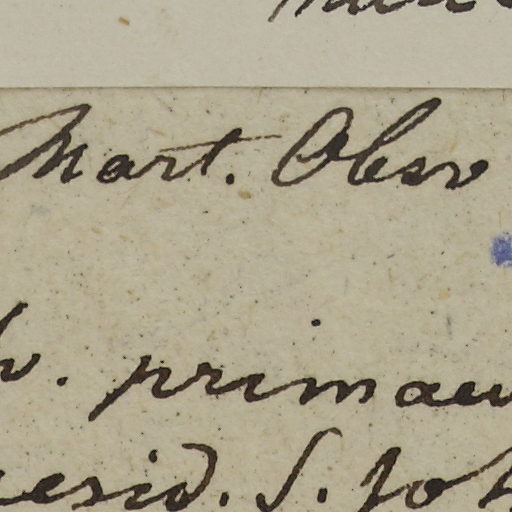 Mart. Obsv
v. primaev
aesid. S. Joh